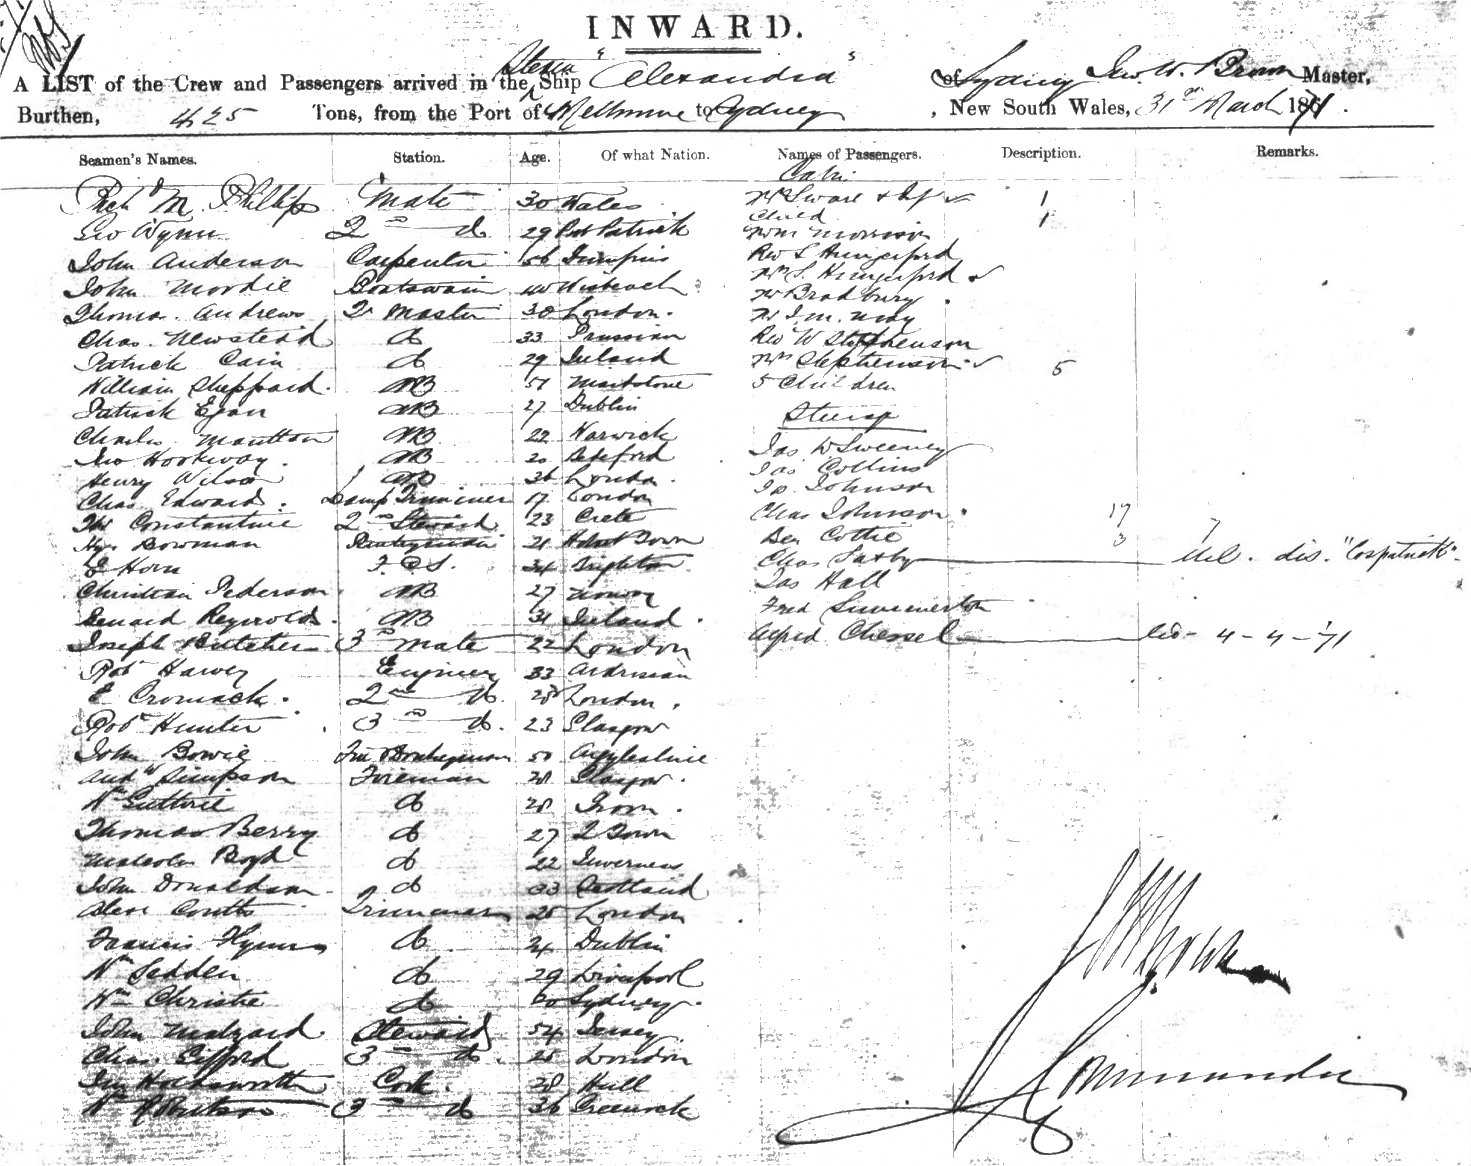 INWARD.
A LIST of the Crew and Passengers arrived in the Steam Ship "Alexandra" of Sydney Jno. W. Brown Master,
Burthen, 425 Tons, from the Port of Melbourne to Sydney, New South Wales, 31st March 1871.
Seamen's Names. Station. Age. Of what Nation. Names of Passengers. Description. Remarks.
Cabin
Richd M. Phillips Mate 30 Wales
1
Geo Wynn 2nd do 29 Port Patrick
Child 1
Wm Morrison
John Anderson Carpenter 56 Dumfries Rev S Hungerford
John Moodie Boatswain Mrs S. Hungerford
Mr Bradbury
Thomas Andrews Qr Master 30 London. Mr J. M. May
Chas. Newstead do 33 Prussian Rev W Stephenson
Patrick Cain do 29 Ireland Mrs Stephenson 5
William Sheppard. AB 51 Maidstone 5 Children
Patrick Egan AB 27 Dublin
Steerage
Charles Moutton AB 22 Warwick
Jas W Sweeney
Jno Hookway. AB 20 Bideford Jas Collins
Henry Wilson AB 36 London. Johnson
Chas. Edwards. Lamp Trimmer 17 London Chas Johnson.
17
Constantine 2nd Steward 23 Crete Ben Cottie 3 7
Hy Bowman 21 Chas Saxby dis. "Cospatrick"
E Horn F.C.S. 34 Brighton Jas Hall
Christian Pederson. AB 27 Norway Fred Swinnerton
Reynolds. AB 31 Ireland.
Joseph Butcher 3rd Mate 22 London Alfred Chessel 4-4-71
Robt Harvey Engineer 33 Ardrossan
E Cromack. 2nd do. 28 London.
Robt Hunter 3rd do. 23 Glasgow
John Bowie 50 Argyleshire
Andw Simpson Fireman 28 Glasgow.
Wm Guthrie do 28 Troon.
Thomas Berry do 27 Town
Malcolm Boyd do 22 Inverness
John Donaldson do 33 Scotland
Alexr Coutts Trimmers 25 London
Francis Flynn do 24 Dublin
Wm Sedden do 29 Liverpool
Wm Christie do Sydney.
John Malzard. Steward 54 Jersey
Chas. Gifford 3rd do. 25 London
Jno Holdsworth Cook. 28 Hull
Wm Robertson 3rd do 36 Greenock
J W Brown
Commander